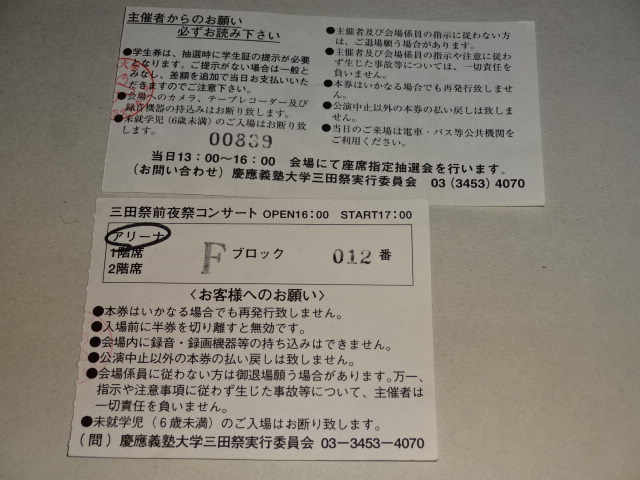 主催者からのお願い
必ずお読み下さい
●学生券は、抽選時に学生証の提示が必要
となります。ご提示がない場合は一般と
みなし、差額を追加で当日お支払いいた
だきますのでご注意下さい。
●会場へのカメラ、テープレコーダー及び
録音機器の持込みはお断り致します。
●未就学児(6歳未満)のご入場はお断り致
します。
00839
●主催者及び会場係員の指示に従わない方
は、ご退場願う場合があります。
●主催者及び会場係員の指示や注意に従わ
ず生じた事故等については、一切責任を
負いません。
●本券はいかなる場合でも再発行致しませ
ん。
●公演中止以外の本券の払い戻しは致しま
せん。
●当日のご来場は電車・バス等公共機関を
ご利用ください。
当日13:00〜16:00 会場にて座席指定抽選会を行います。
(お問い合わせ)慶應義塾大学三田祭実行委員会 03(3453)4070
三田祭前夜祭コンサート OPEN16:00 START17:00
アリーナ
1階席
2階席
F ブロック 012 番
〈お客様へのお願い〉
●本券はいかなる場合でも再発行致しません。
●入場前に半券を切り離すと無効です。
●会場内に録音・録画機器等の持ち込みはできません。
●公演中止以外の本券の払い戻しは致しません。
●会場係員に従わない方は御退場願う場合があります。万一、
指示や注意事項に従わず生じた事故等について、主催者は
一切責任を負いません。
●未就学児(6歳未満)のご入場はお断り致します。
(問)慶應義塾大学三田祭実行委員会 03−3453−4070